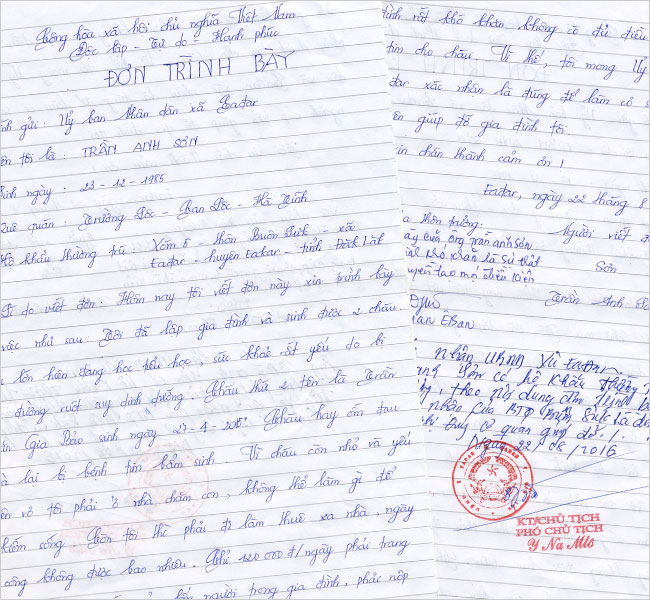 Cộng hòa xã hội chủ nghĩa Việt Nam
Độc lập - Tự do - Hạnh phúc
ĐƠN TRÌNH BÀY
nh gửi: Uỷ ban nhân dân xã Eađar
ên tôi là: TRẦN ANH SƠN
inh ngày: 23-12-1985
uê quán: Trường Lộc - Can Lộc - Hà Tĩnh
ộ khẩu thường trú: Xóm 5 - thôn Buôn - xã
Eađar - huyện Eakar - tỉnh Đăk Lăk
í do viết đơn: Hôm nay tôi viết đơn này xin trình bày
việc như sau: Tôi đã lập gia đình và sinh được 2 cháu.
lớn hiện đang học tiểu học, sức khoẻ rất yếu do bị
đường ruột suy dinh dưỡng. Cháu thứ 2 tên là Trần
Gia Bảo sinh ngày 27-4-2015. Cháu hay ốm đau
à lại bị bệnh tim bẩm sinh. Vì cháu còn nhỏ và yếu
ên vợ tôi phải ở nhà chăm con, không thể làm gì để
kiếm sống. Còn tôi thì phải đi làm thuê xa nhà, ngày
công không được bao nhiêu. Chỉ 120 000 đ/ngày phải trang
người trong gia đình, phải nộp
đình rất khó khăn không có đủ điều
tim cho cháu. Vì thế, tôi mong Uỷ
đar xác nhận là đúng để làm cơ s
ên giúp đỡ gia đình tôi
in chân thành cảm ơn!
Eađar, ngày 22 tháng 8
a thôn trưởng: Người viết đ
ày của ông trần anh sơn
khó khăn là sự thật
tạo mọi điều kiện
Sơn
Trần Anh Sơ
Êban
nhận UBND Xã Eađar.
có hộ khẩu thường
, theo nội dung đơn trình b
nhận của BTQ
cơ quan giúp đỡ!
Ngày 22/08/2016
KT/CHỦ TỊCH
PHÓ CHỦ TỊCH
Y Na Mlô